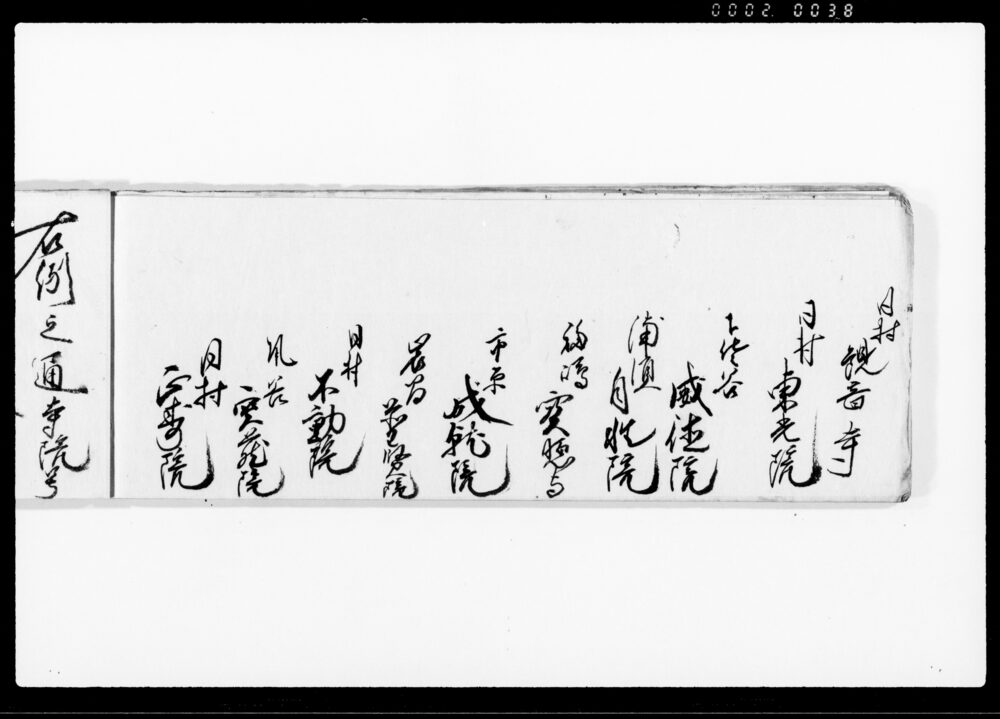 0002 0038
同村
観音寺
同村
東光院
谷
威徳院
浦須
月性院
福嶋
市原
成就院
普賢院
同村
不動院
風谷
宝蔵院
同村
院
右例之通寺院号